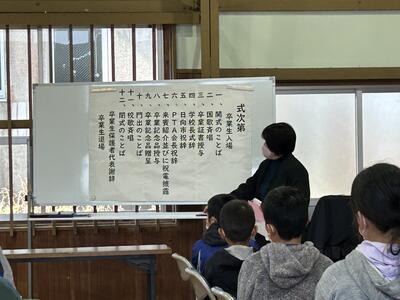 式次第
卒業生入場
一、開式のことば
二、国歌斉唱
三、卒業証書授与
四、学校長式辞
五、日向市祝辞
六、PTA会長祝辞
七、来賓紹介並びに祝電披露
八、卒業記念品授与
九、卒業記念品贈呈
十、門出のことば
十一、校歌斉唱
十二、閉式のことば
卒業生保護者代表謝辞
卒業生退場